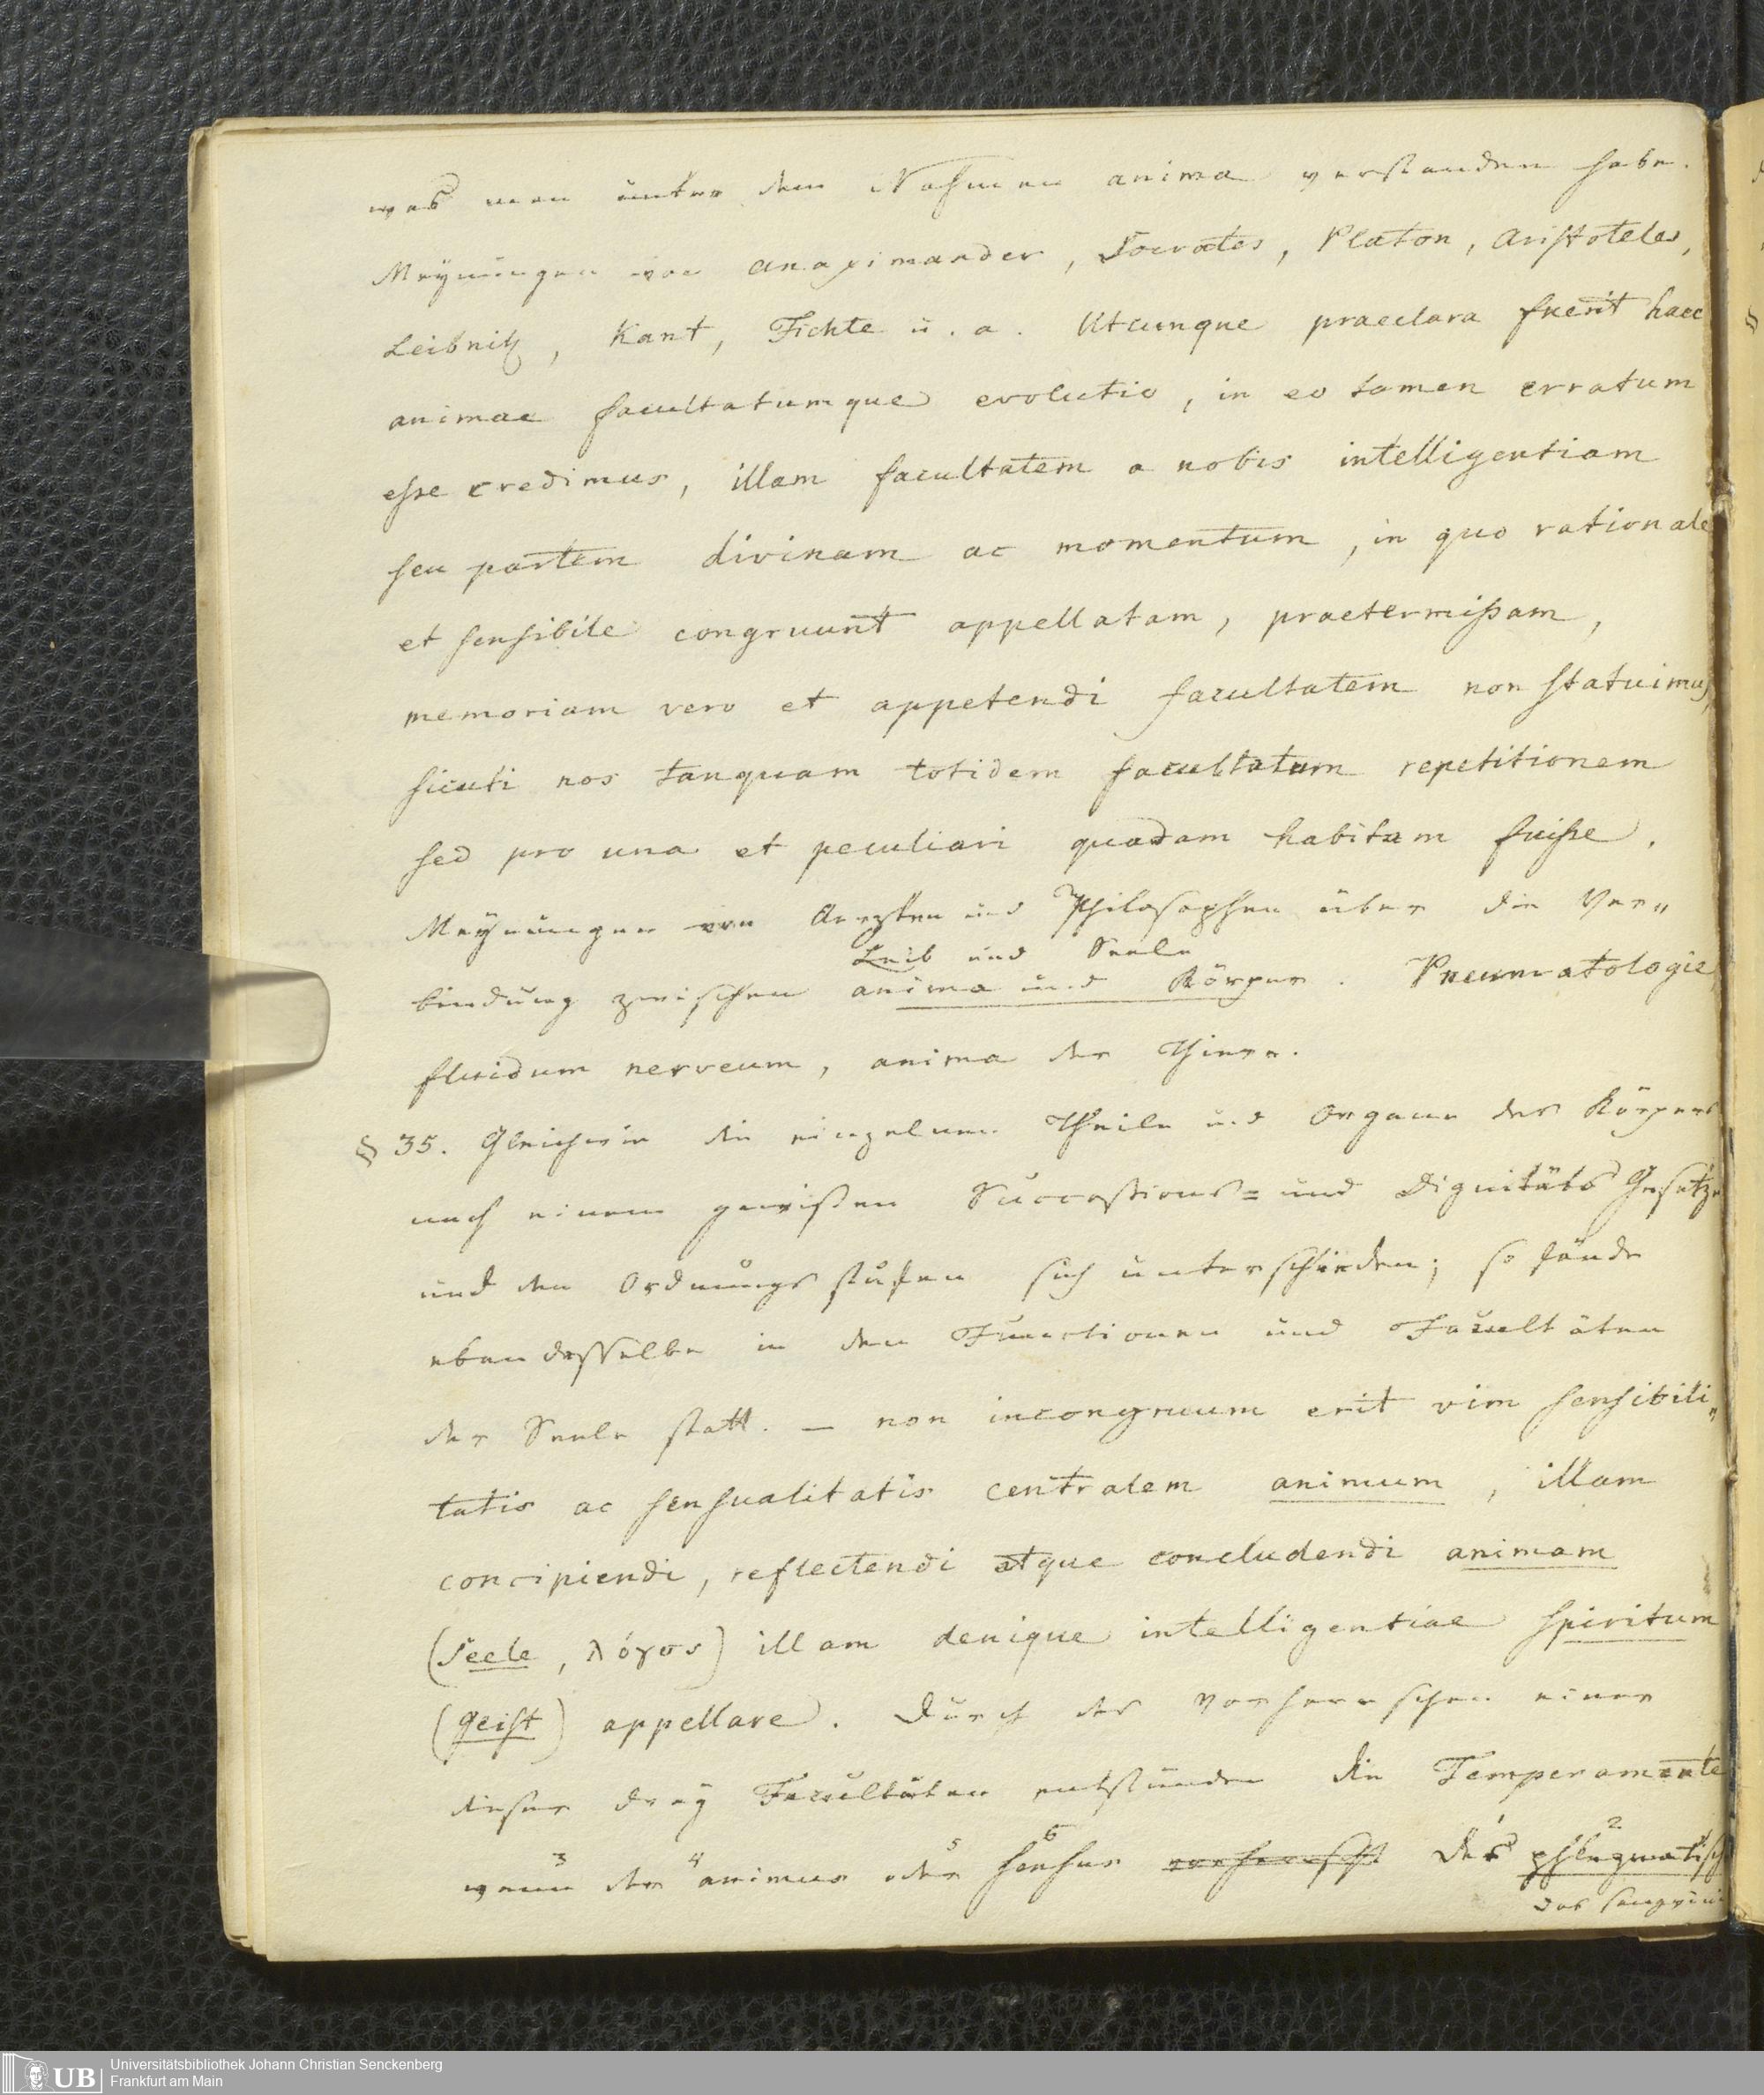 was man unter dem Nahmen anima verstanden habe.
Meÿnungen von Anaximander, Socrates, Platon, Aristoteles,
Leibnitz, Kant, Fichte u. a. Utcunque praeclara fuerit haec
animae facultatumque evolutio, in eo tamen erratum
esse credimus, illam facultatem a nobis intelligentiam
seu partem divinam ac momentum, in quo rationale
et sensibile congruunt appellatam, praetermissam,
memoriam vero et appetendi facultatem non statuimus,
sicuti nos tanquam totidem facultatum repetitionem
sed pro una et peculiari quadam habitam fuisse.
Meÿnungen von Aerzten und Philosophen über die Ver„
Leib und Seele
bindung zwischen anima und Körper. Pneumatologie,
fluidum nerveum, anima der Thiere.
§ 35. Gleichwie die einzelnen Theile und Organe des Körpers
nach einem gewissen Successions= und Dignitäts Gesetze
und den Ordnungsstufen sich unterschieden; so fände
ebendasselbe in den Functionen und Facultäten
der Seele statt. — non incongruum erit vim sensibili„
tatis ac sensualitatis centralem animum, illam
concipiendi, reflectendi atque concludendi animam
(Seele, λόγος) illam denique intelligentiae spiritum
(Geist) appellare. Durch das Vorherrschen einer
dieser dreÿ Facultäten entstünden die Temperamente
3 4 5 6 1 2
wenn der animus oder sensus vorherrscht das phlegmatisch
das sanguini
Universitätsbibliothek Johann Christian Senckenberg
UB Frankfurt am Main